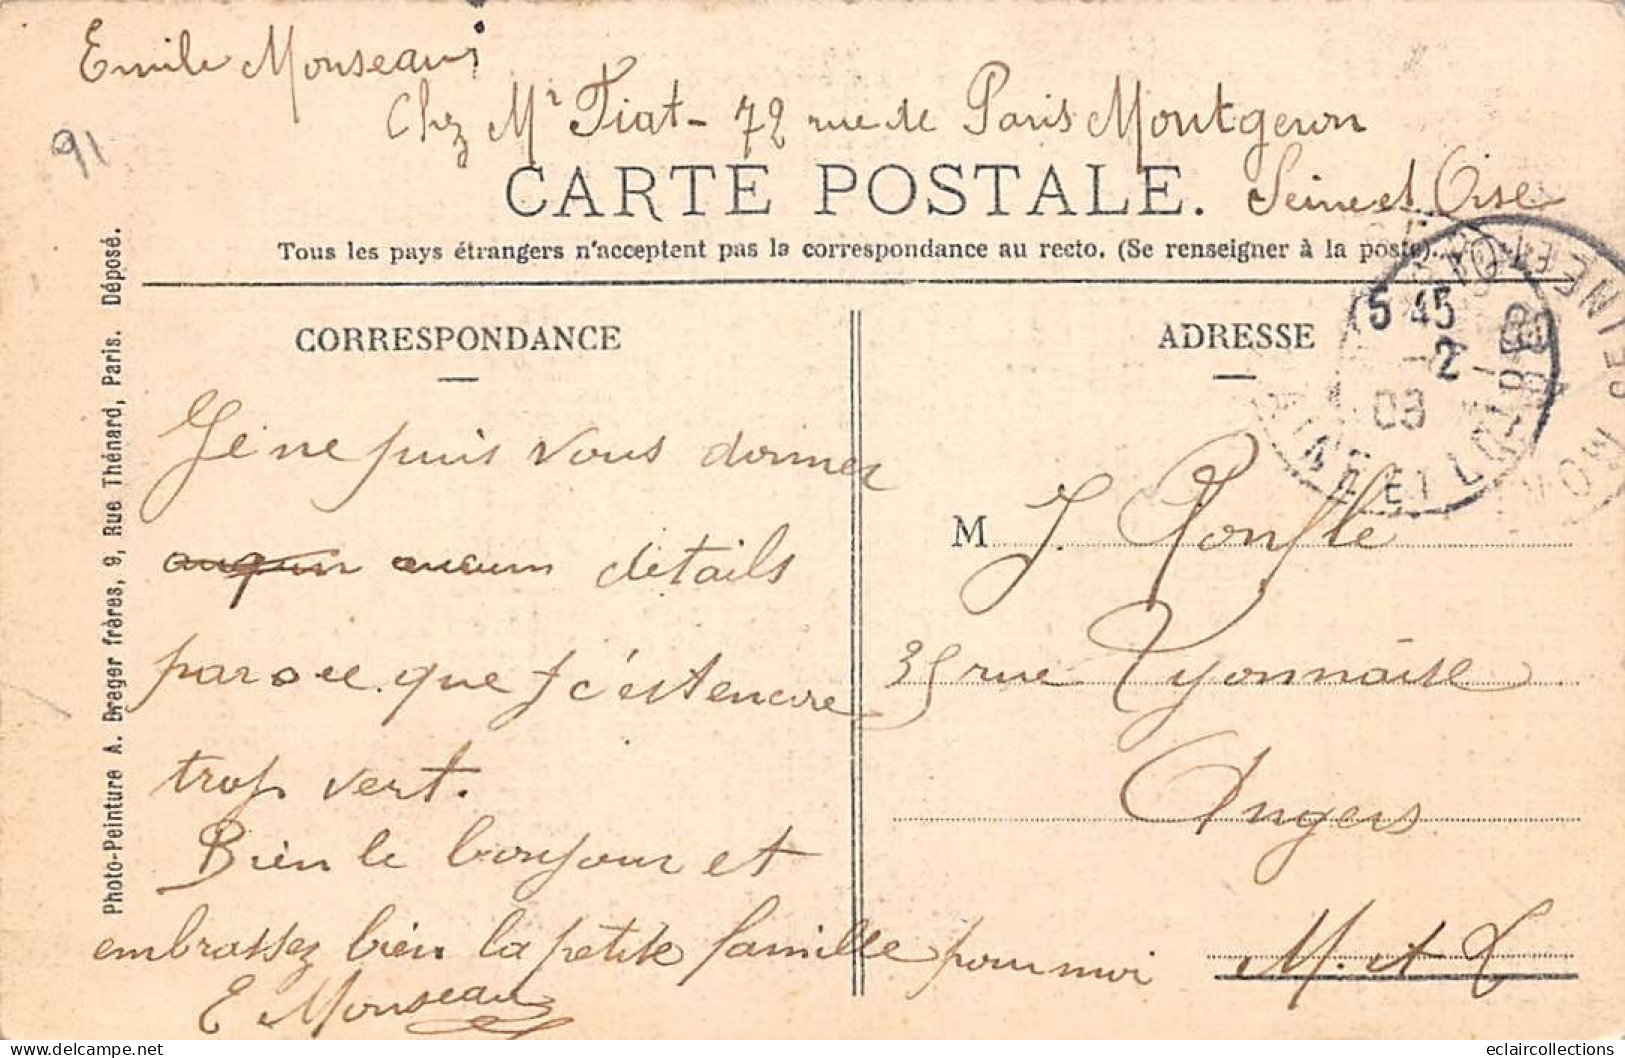 Emile Monseaux
Chez Mr Fiat - 72 rue de Paris Montgeron
Seine et Oise
91
CARTE POSTALE.
Tous les pays étrangers n'acceptent pas la correspondance au recto. (Se renseigner à la poste).
Photo-Peinture A. Dreger frères, 9, Rue Thénard, Paris. Déposé.
CORRESPONDANCE
Je ne puis vous donner
aucun détails
parce que c'est encore
trop vert.
Bien le bonjour et
embrassez bien la petite famille pour moi
E Monseaux
ADRESSE
5 45
2
08
SEINE ET OISE
MAINE ET LOIRE
M J.
35 rue Lyonnaise
Angers
M. et L
eclaircollections